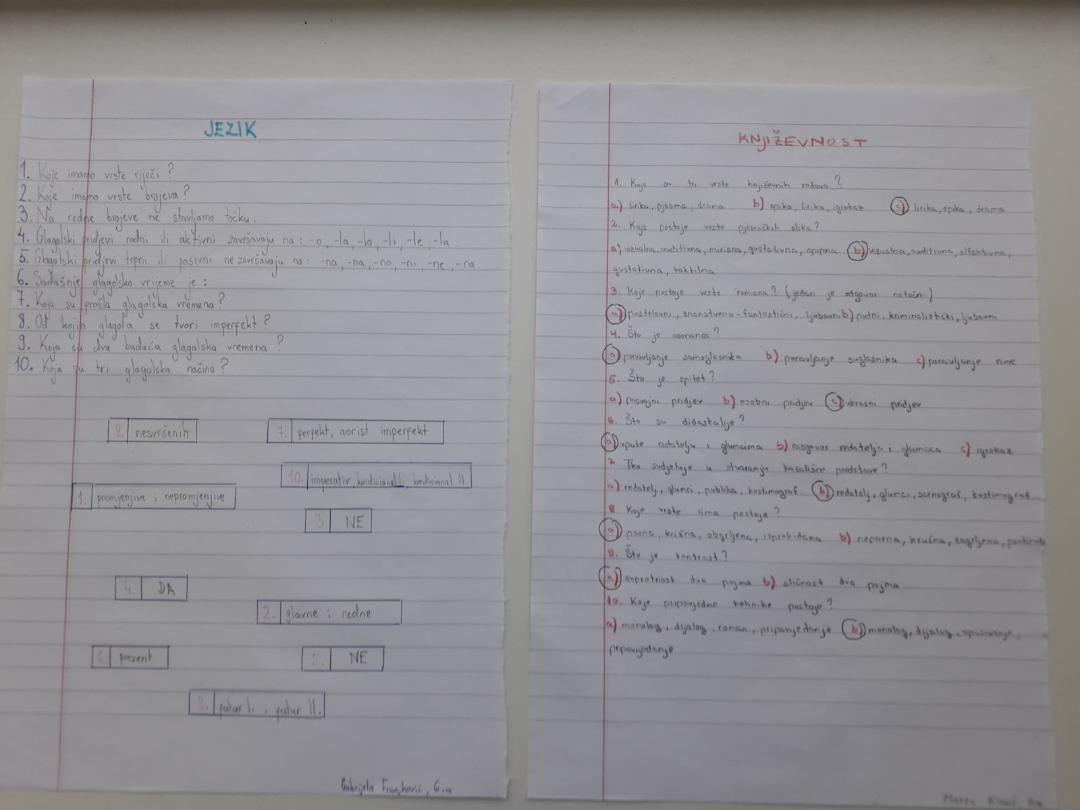 JEZIK
1. Koje imamo vrste riječi?
2. Koje imamo vrste brojeva?
3. Na redne brojeve ne stavljamo točku.
4. Glagolski pridjevi radni ili aktivni završavaju na: -o, -la, -lo, -li, -le, -la
5. Glagolski pridjevi trpni ili pasivni ne završavaju na: -na, -na, -no, -ni, -ne, -na
6. Sadašnje glagolsko vrijeme je:
7. Koja su prošla glagolska vremena?
8. Od kojih glagola se tvori imperfekt?
9. Koja su dva buduća glagolska vremena?
10. Koja su tri glagolska načina?
8. nesvršenih
7. perfekt, aorist imperfekt
10. imperativ, kondicional I., kondicional II.
1. promjenjive i nepromjenjive
3. NE
4. DA
2. glavne i redne
6. prezent
5. NE
9. futur I. i futur II.
Gabrijela 6.a
KNJIŽEVNOST
1. Koje su tri vrste književnih rodova?
a) lirika, pjesma, drama b) epika, lirika, igrokaz c) lirika, epika, drama
2. Koje postoje vrste pjesničkih slika?
a) vizualna, auditivna, mirisna, gustativna, opipna b) vizualna, auditivna, olfaktivna,
gustativna, taktilna
3. Koje postoje vrste romana? (jedan je odgovor netočan)
a) pustolovni, znanstveno-fantastični, ljubavni b) putni, kriminalistički, ljubavni
4. Što je asonanca?
a) ponavljanje samoglasnika b) ponavljanje suglasnika c) ponavljanje rime
5. Što je epitet?
a) posvojni pridjev b) osobni pridjev c) ukrasni pridjev
6. Što su didaskalije?
a) upute redatelju i glumcima b) razgovor redatelja i glumaca c) igrokaz
7. Tko sudjeluje u stvaranju kazališne predstave?
a) redatelj, glumci, publika, kostimograf b) redatelj, glumci, scenograf, kostimograf
8. Koje vrste rima postoje?
a) parna, križna, obgrljena, isprekidana b) neparna, kružna, zagrljena,
9. Što je kontrast?
a) suprotnost dva pojma b) sličnost dva pojma
10. Koje pripovjedne tehnike postoje?
a) monolog, dijalog, roman, pripovjedanje b) monolog, dijalog, opisivanje,
pripovjedanje